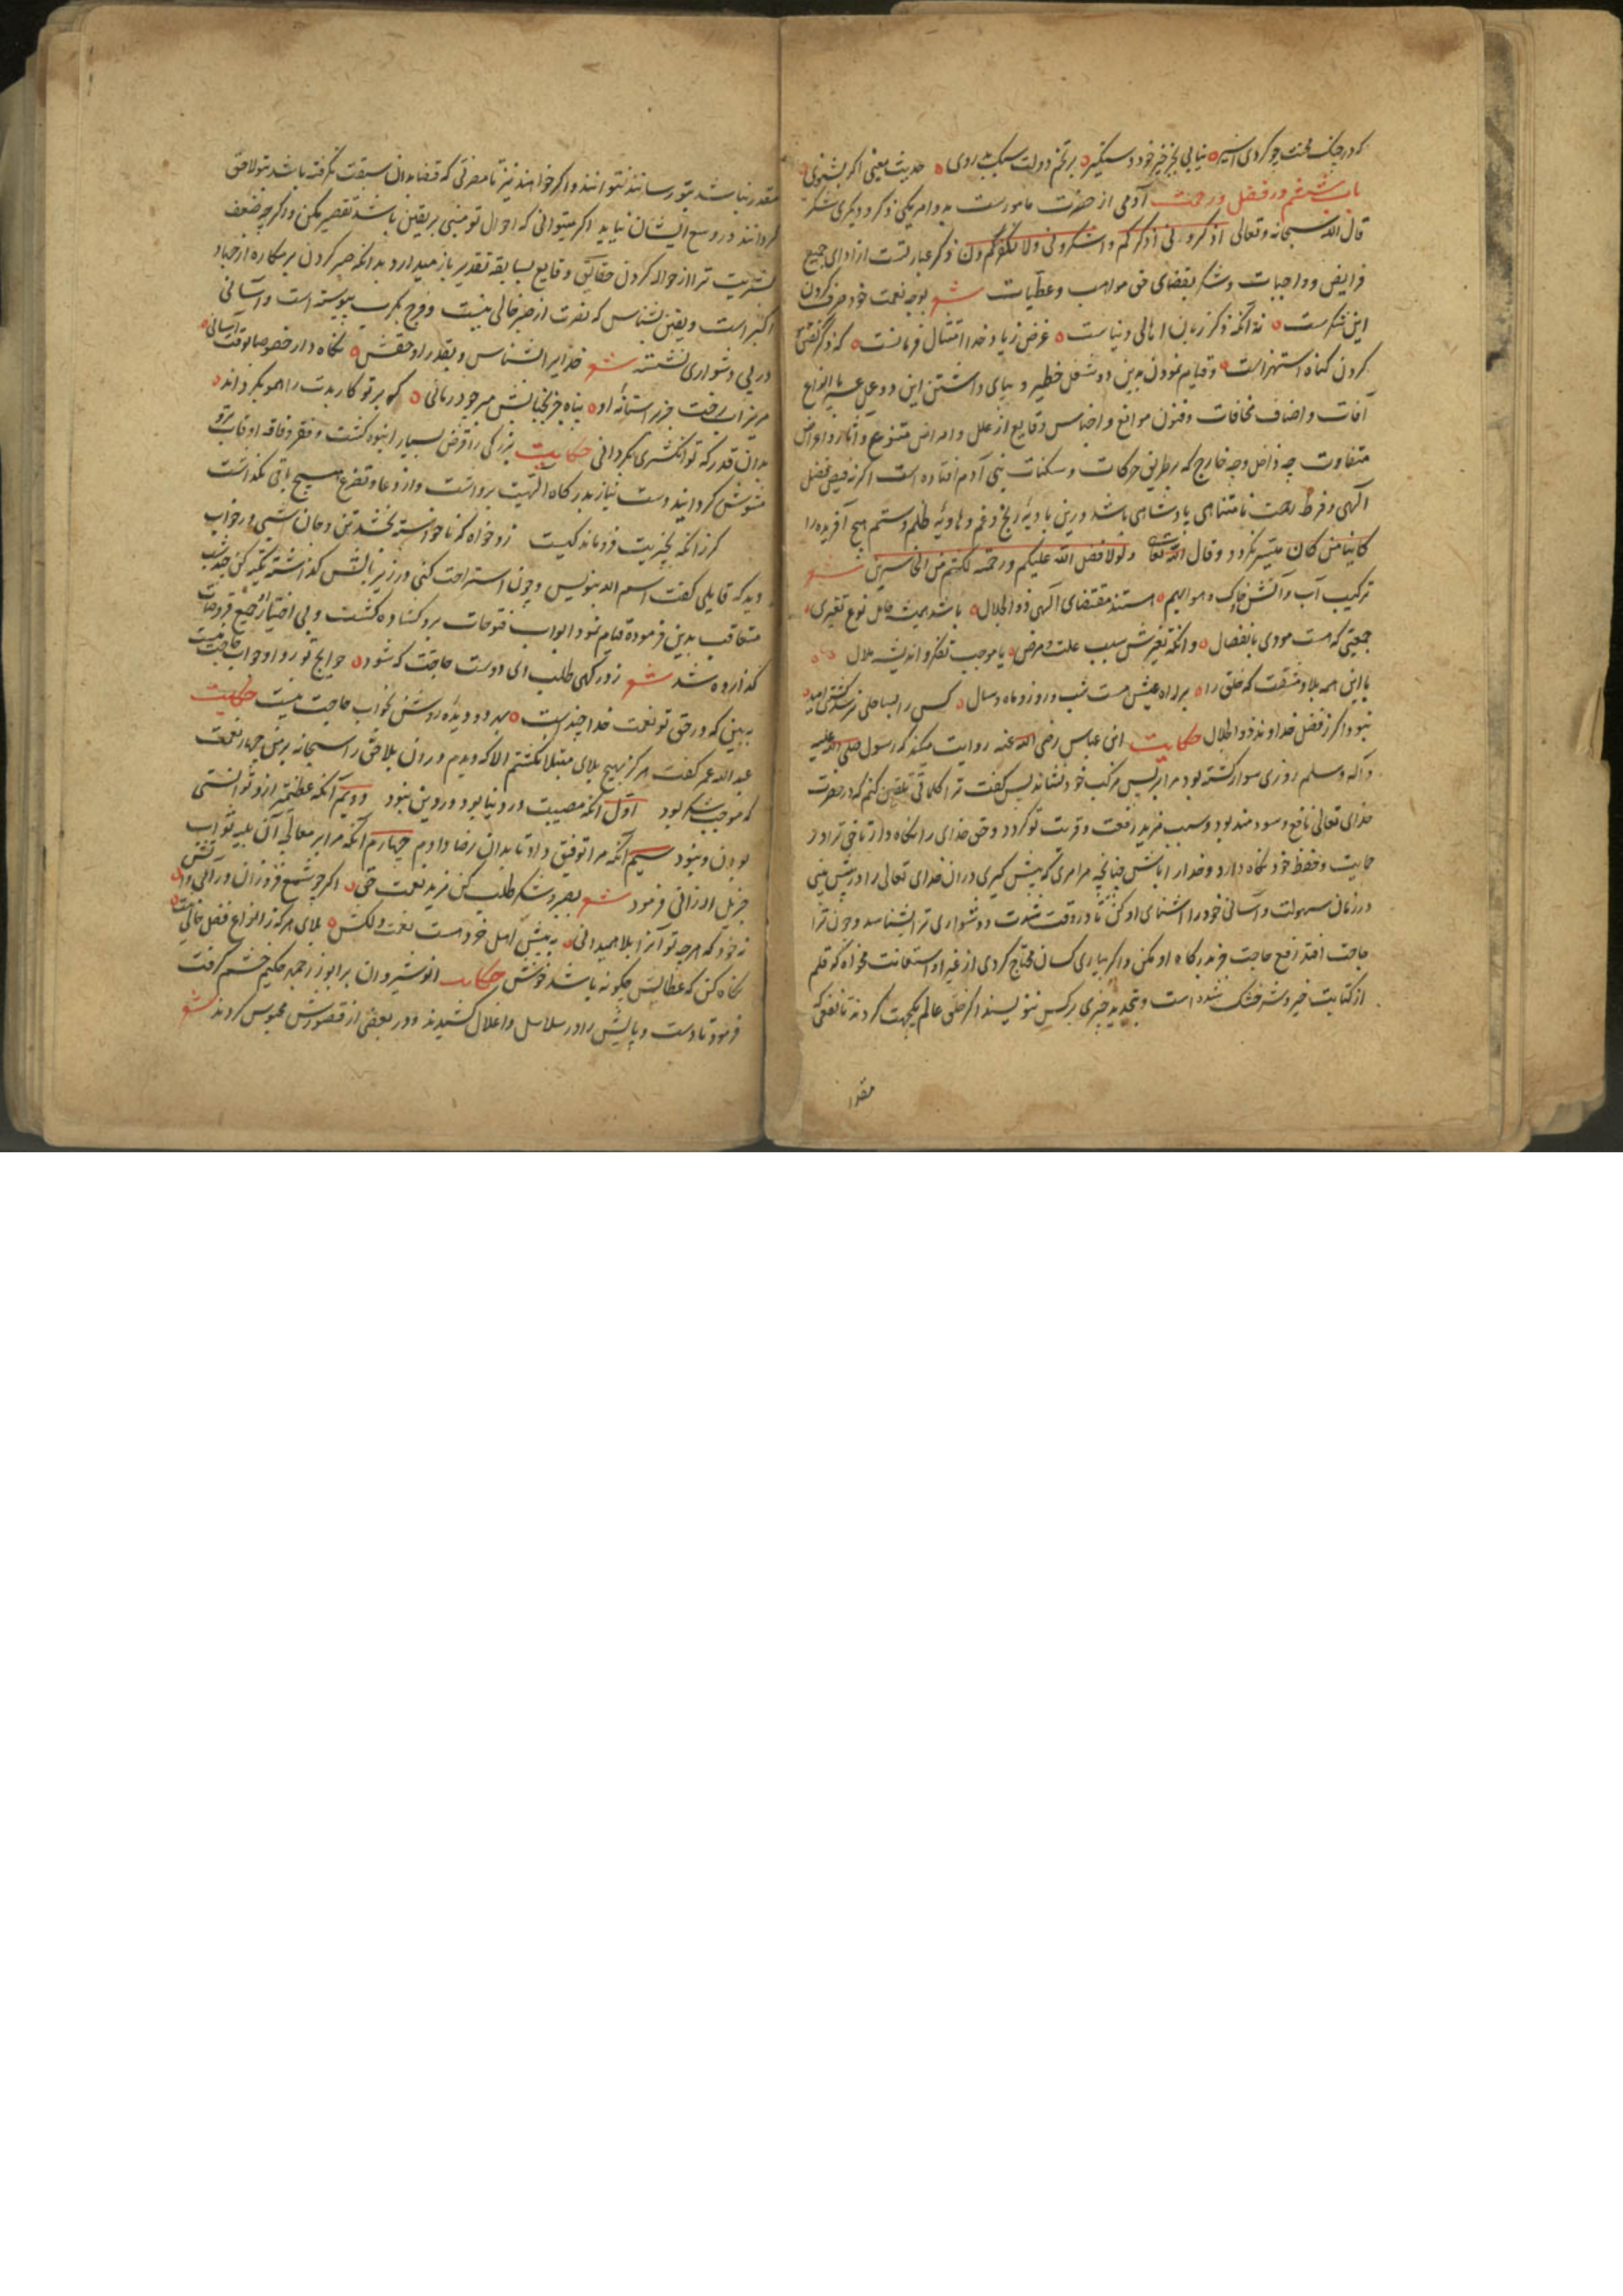 که در چنک محنت چو کردی اسیر ه نیابی بجز خیر خود دستگیر ه بر تخم دولت سبک بدروی ه حدیث معینی اگر بشنوی
باب ششم در فضل و رحمت آدمی از حضرت مامورست بدو امر یکی ذکر و دیگری شکر
قال الله سبحانه و تعالی اذکرونی اذکرکم و اشکرولی ولا تکفرون ذکر عبارتست از ادای جمیع
فرایض و واجبات و شکر بقضای حق مواهب و عطیات شعر بوجه نعمت خود صرف کردن
این شکرست ه نه آنکه ذکر زبان اهالی دنیاست ه غرض ز یاد خدا امتثال فرمانست ه که ذکر
کردن کناه استهزاست ه و قیام نمودن بدین دو شغل خطیر و بپای داشتن این دو عمل عسیر با انواع
آفات و اصناف مخافات و فنون موانع و اجناس وقایع از علل و امراض متنوع و آثار و اعراض
متفاوت چه داخل و چه خارج که بر طریق حرکات و سکنات بنی آدم افتاده است اگر نه فیض فضل
آلهی و فرط رحمت نامتناهی پادشاهی باشد درین بادیه رنج و غم و هاویه ظلم و ستم هیچ آفریده را
کاینا من کان میسر نکردد و قال الله تعالی ولولا فضل الله علیکم و رحمته لکنتم من الخاسرین شعر
ترکیب آب و آتش و خاک و هواییم ه مستند مقتضای آلهی ذو الجلال ه باشد همیشه قابل نوع تغیری ه
جمعیتی که هست مودی بانفصال ه وانکه تغیرش سبب علت و مرض ه یا موجب تفکر و اندیشه ملال ه
با این همه بلا و مشقت که خلق را ه بر راه عیش هست شب و روز و ماه و سال ه کس را بساحلی نرسد کشتی امید ه
نبود اگر ز فضل خداوند ذو الجلال حکایت ابن عباس رضی الله عنه روایت میکند که رسول صلی الله علیه
و آله و سلم روزی سوار کشته بود مرا بر پس مرکب خود نشاند پس کفت ترا کلماتی تلقین کنم که در حضرت
خدای تعالی نافع و سودمند بود و سبب مزید رفعت و قربت تو کردد و حق خدای را نکاه دار تا حق ترا در
حمایت و حفظ خود نکاه دارد و خدا را باش چنانچه هر امری که پیش کیری در ان خدای تعالی را در پیش بینی
در زمان سهولت و آسانی خود را آشنای او کن تا در وقت شدت و دشواری ترا بشناسد و چون ترا
حاجت افتد رفع حاجت جز بدرکاه او مکن و اکر بیاری کسان محتاج کردی از غیر او استعانت مخواه که قلم
از کتابت خیر و شر خشک شده است و بتجدید چیزی بر کس ننویسند اکر خلق عالم یکجهت کردند تا نفعی که
مقدر
مقدر نباشد بتو رسانند نتوانند و اکر خواهند نیز تا مضرتی که قضا بدان سبقت نکرفته باشد بتو لاحق
کردانند در وسع ایشان نیاید اکر میتوانی که احوال تو مبنی بر یقین باشد تقصیر مکن و اکر چه ضعف
بشریت ترا از حواله کردن حقایق و قایع بسابقه تقدیر باز میدارد بدانکه صبر کردن بر مکاره از جهاد
اکبر است و یقین بشناس که نصرت از صبر خالی نیست و فرج بکرب پیوسته است و آسانی
در پی دشواری نشسته شعر خدایرا بشناس و بقدر او حقش ه نکاه دار خصوصا بوقت آسانی ه
مریز اب رخت جز بر استانه او ه پناه جز بجنابش مبر چو درمانی ه که بر تو کار بدست را همو بکرداند ه
بدان قدر که تو انکشتری بکردانی حکایت بزرکی را قرض بسیار انبوه کشت و فقر و فاقه اوقات برو
مشوش کردانید دست نیاز بدرکاه الهیت برداشت و از دعا و تضرع هیچ باقی نکذاشت
کرز آنکه بجزیت فروماند کیست زو خواه که ناخواسته بخشد تن و جان شبی در خواب
دید که قایلی کفت اسم الله بنویس و چون استراحت کنی در زیر بالش کذاشته تکیه کن چند شب
متعاقب بدین فرموده قیام نمود ابواب فتوحات برو کشاده کشت و بی اختیار جمیع قروضات
کذارده شد شعر ز درکهی طلب ای دوست حاجتت که شود ه حوایج تو روا و جواب حاجت نیست
ببین که در حق تو نعمت خدا چندست ه بهر دو دیده روشن بخواب حاجت نیست حکایت
عبد الله عمر کفت هرکز بهیچ بلای مبتلا نکشتم الا که دیدم در ان بلا حق را سبحانه بر من چهار نعمت
که موجب شکر بود اول آنکه مصیبت در دنیا بود و در دین نبود دویم آنکه عظیمتر ازو توانستی
بودن و نبود سیم آنکه مرا توفیق داد تا بدان رضا دادم چهارم آنکه مرا بر معالی آن بلیه ثواب
جزیل ارزانی فرمود شعر بصبر و شکر طلب کن مزید نعمت حق ه اکر چو شمع فروزان در آتش وا ه
نه خود که هر چه تو آنرا بلا همیدانی ه به پیش اهل خرد هست نعمت دلکش ه بلای هر که ز انواع فضل خالی نیست
نکاه کن که عطایش چکونه باشد خوش حکایت انوشیروان بر ابوزرجمهر حکیم خشم کرفت
فرمود تا دست و پایش را در سلاسل و اغلال کشیدند و در بعضی از قصورش محبوس کردند شعر